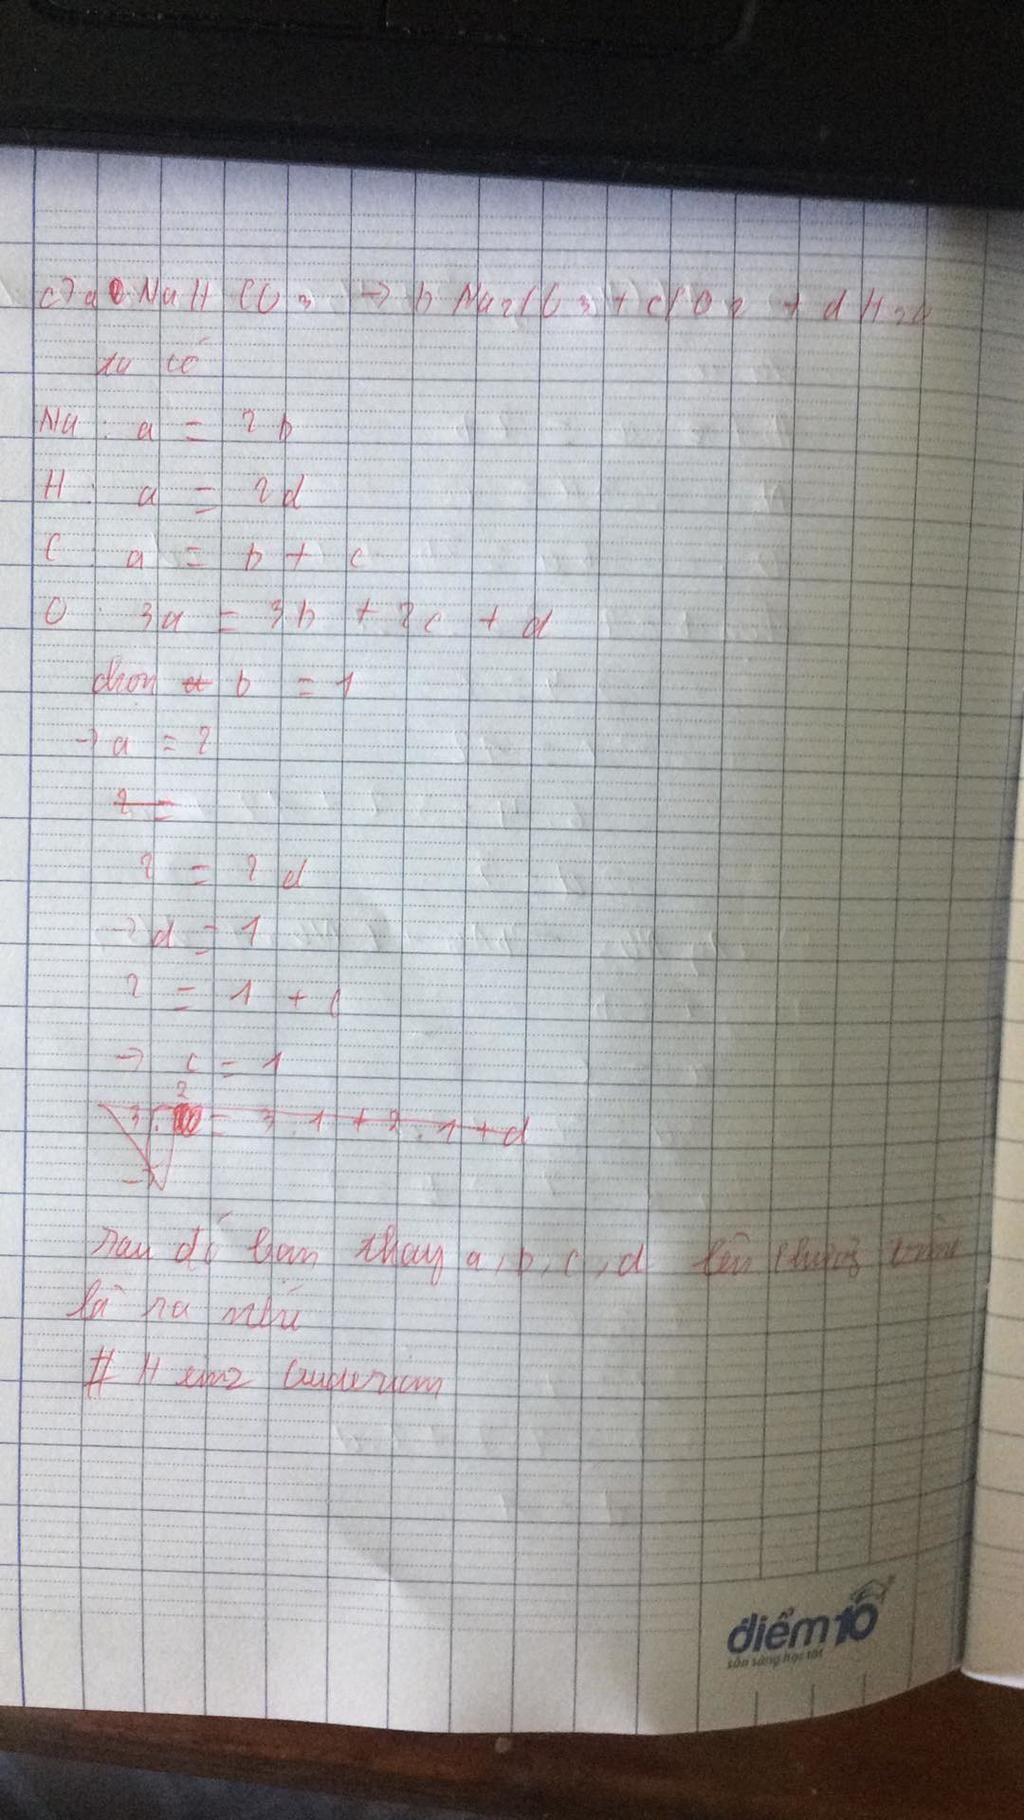 c) a NaHCO3 → b Na2CO3 + c CO2 + d H2O
ta có
Na: a = 2b
H: a = 2d
C a = b + c
O: 3a = 3b + 2c + d
chọn b = 1
→ a = 2
2 =
2 = 2d
→ d = 1
2 = 1 + c
→ c = 1
3.2 = 3.1 + 2.1 + d
→
sau đó bạn thay a, b, c, d lên phương trình
là ra nhé
# Heinz Guderian
điểm10
sẵn sàng học tốt